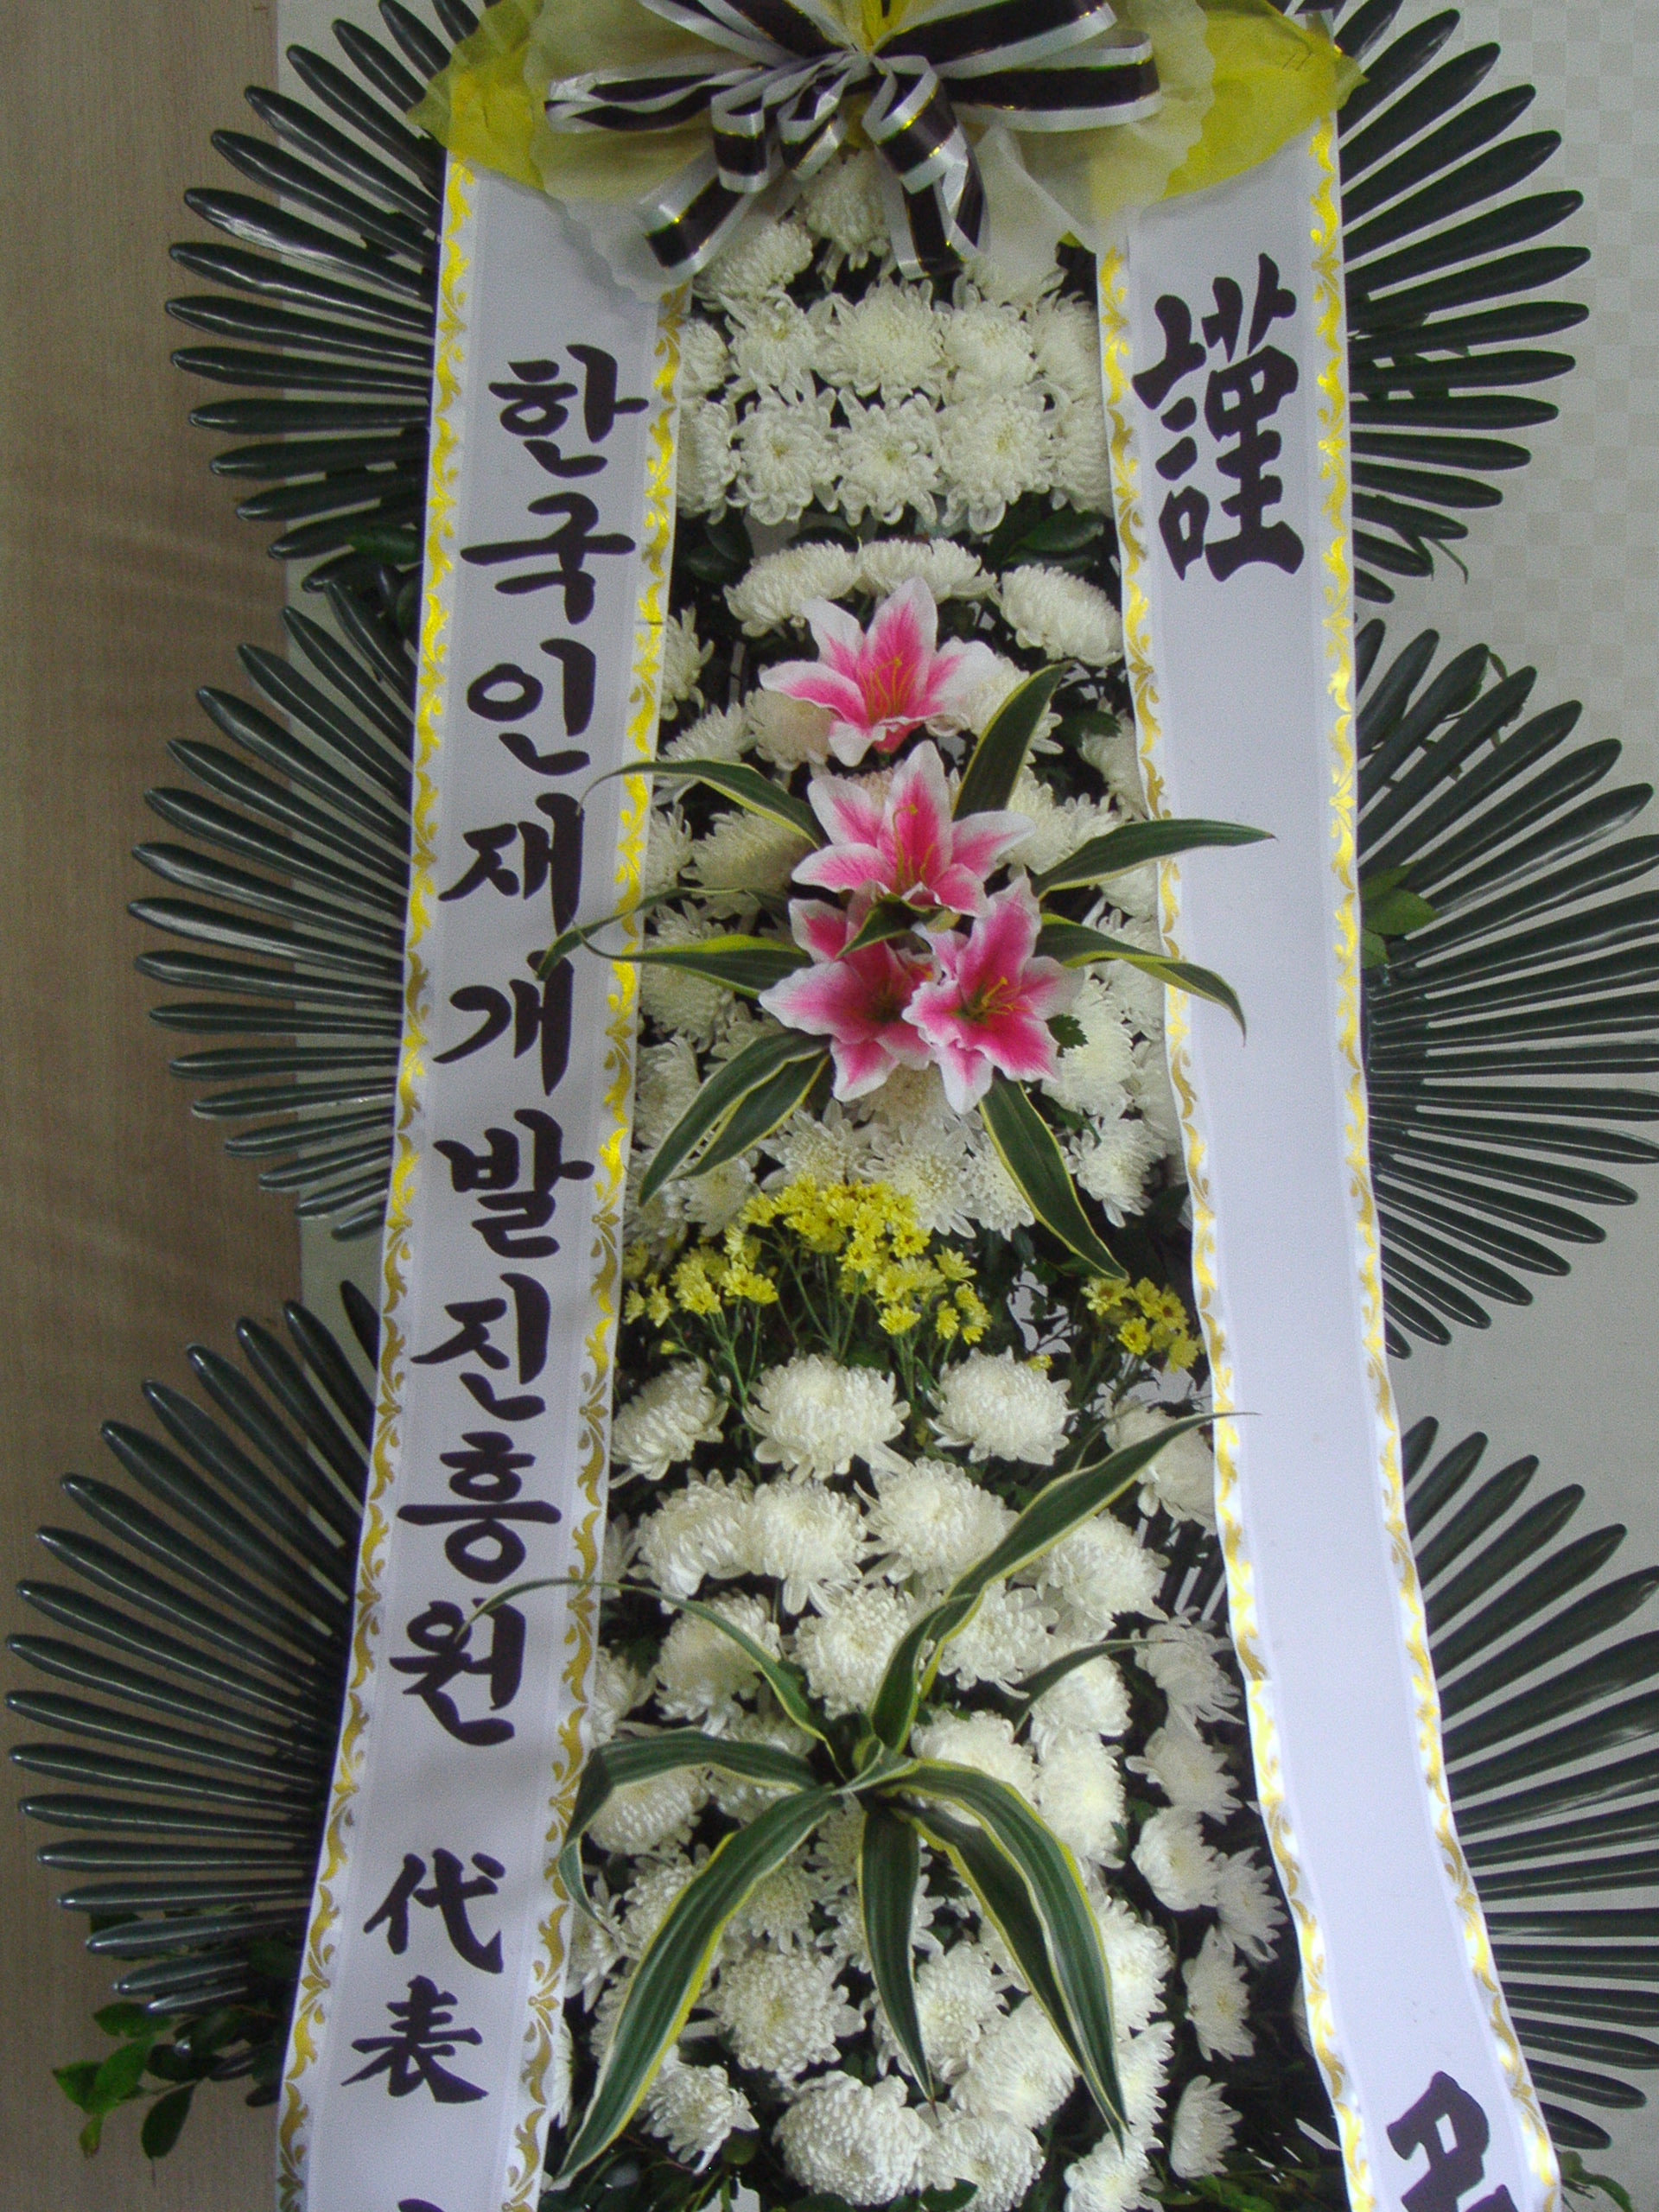 한국인재개발진흥원 代表
謹